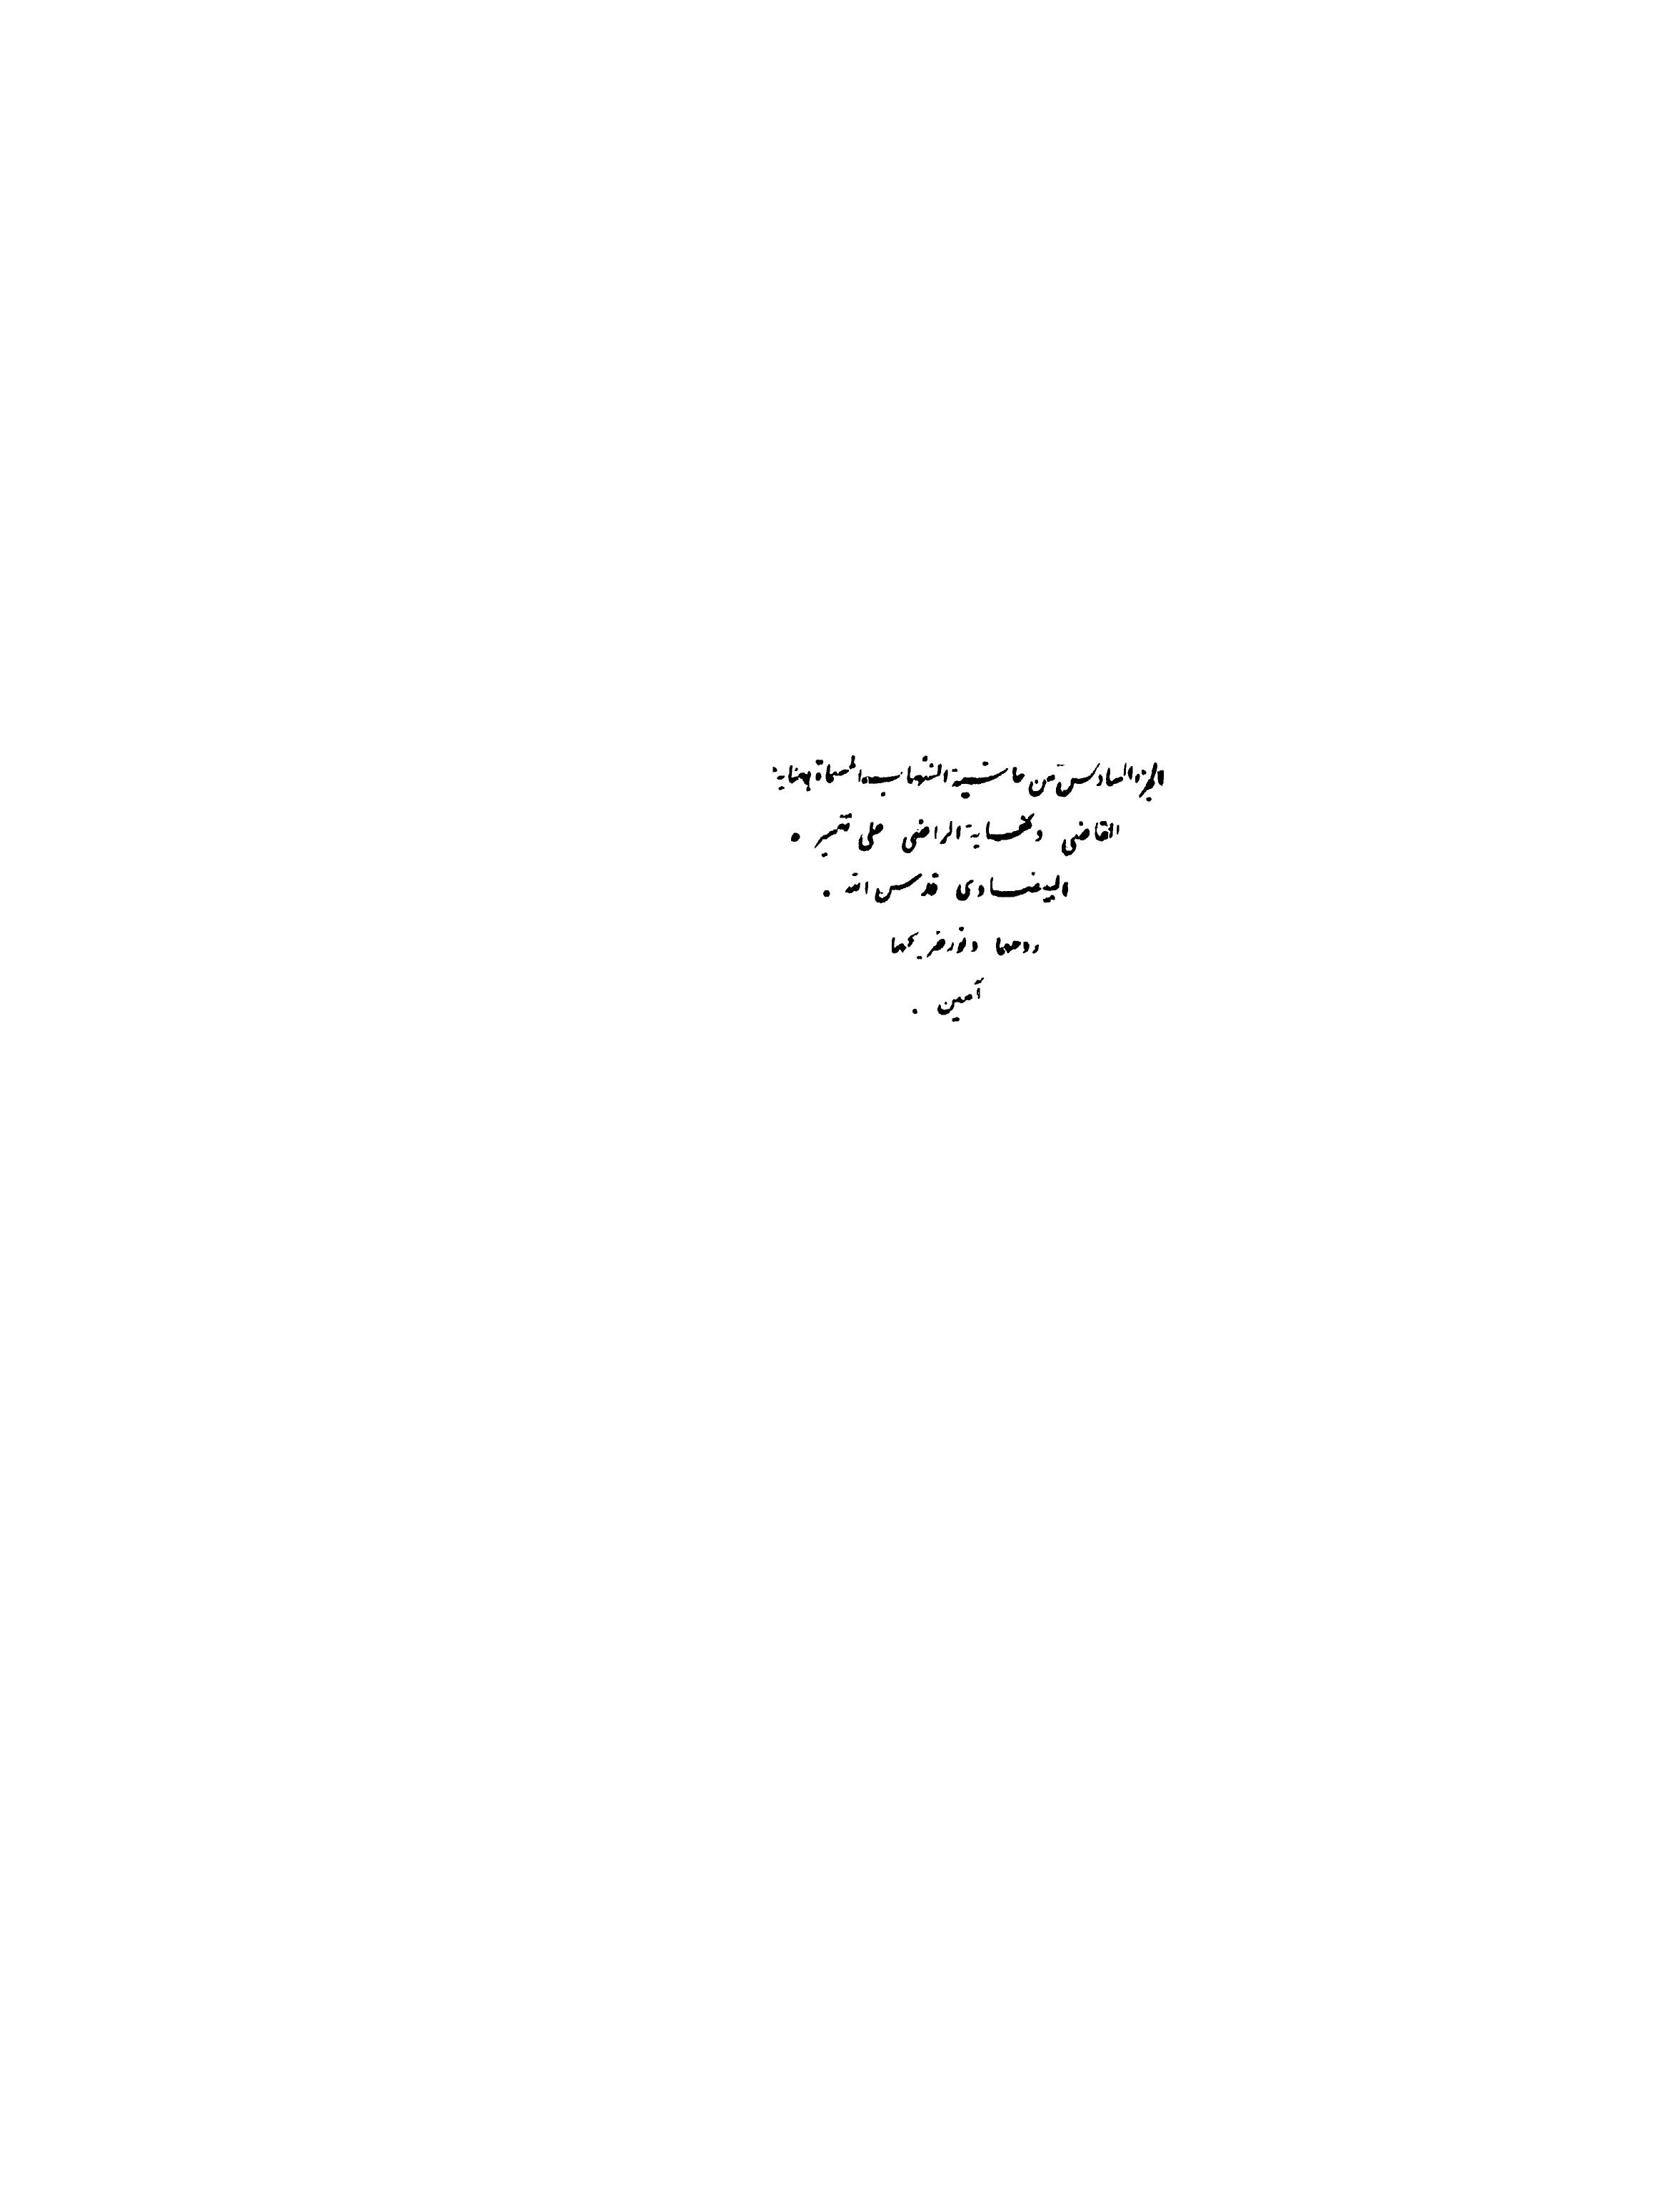 الجزء السادس من حاشية الشهاب المسماة بعناية
القاضى وكفاية الراضى على تفسير .
البيضاوى قدس الله .
روحهما ونور ضريحهما
آمين .